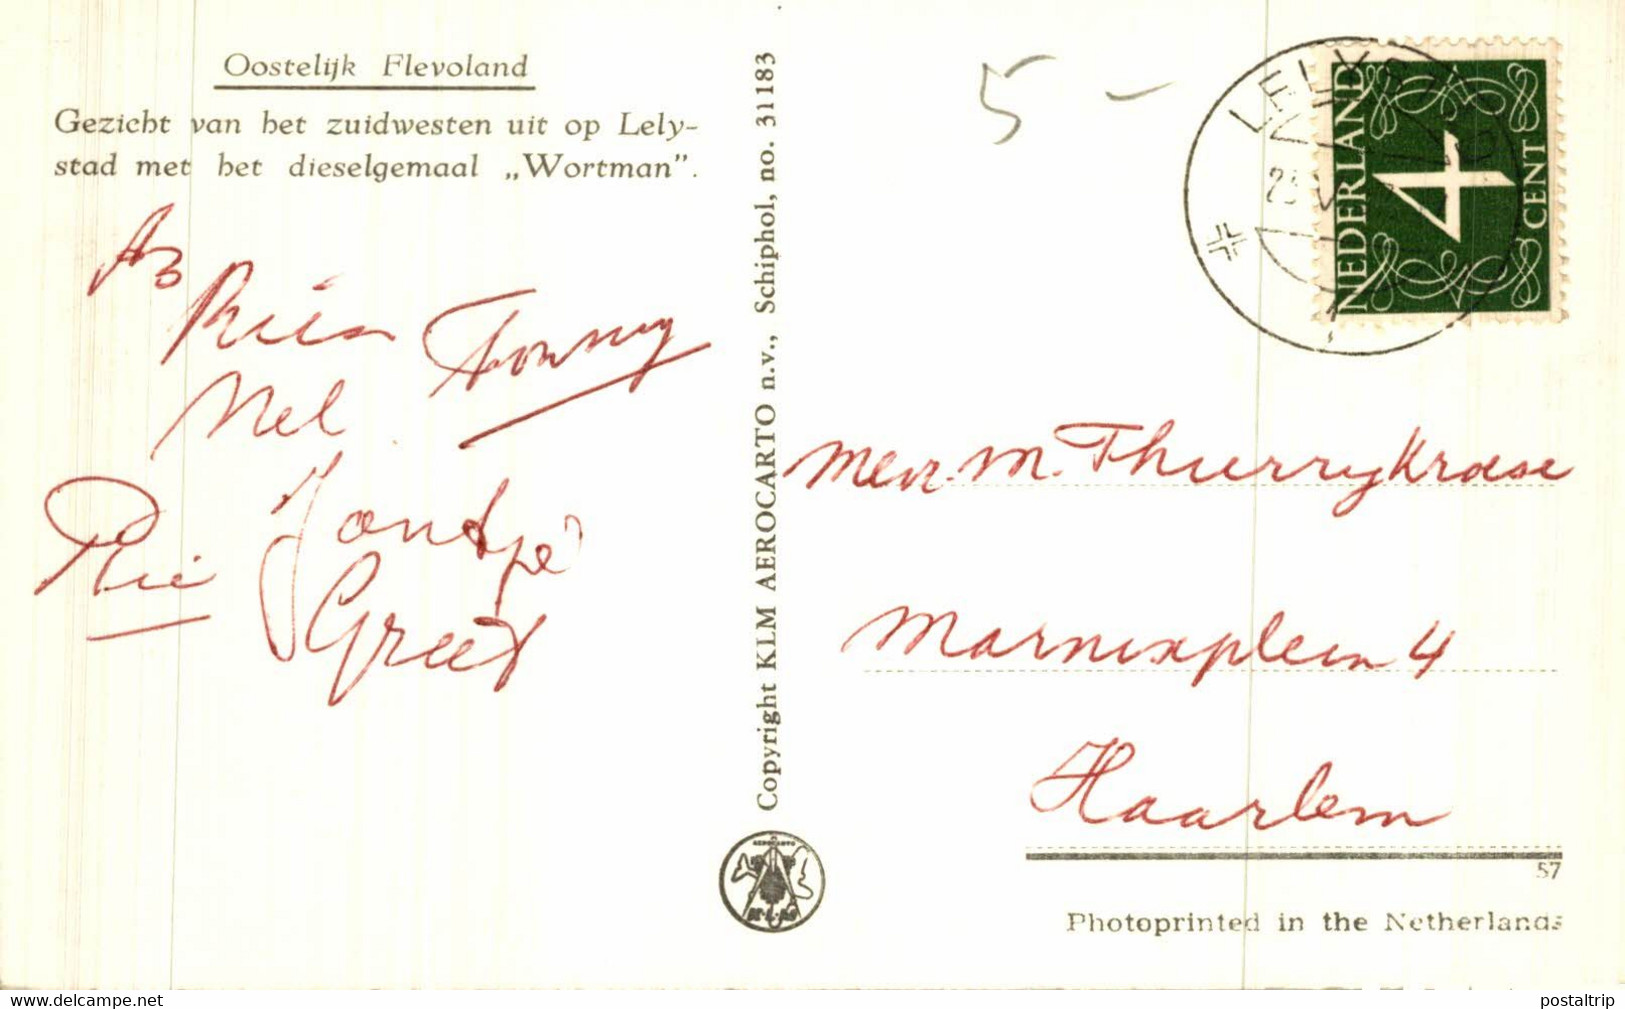 Oostelijk Flevoland
Gezicht van het zuidwesten uit op Lely-
stad met het dieselgemaal „Wortman”.
Rien Tonny
Nel
Rie Jantje
Greet
Copyright KLM AEROCARTO n.v., Schiphol, no. 31183
5 -
LELYSTAD
NEDERLAND
4
CENT
Mevr. M. Thierry Kroese
Marnixplein 4
Haarlem
57
Photoprinted in the Netherlands
www.delcampe.net
postaltrip